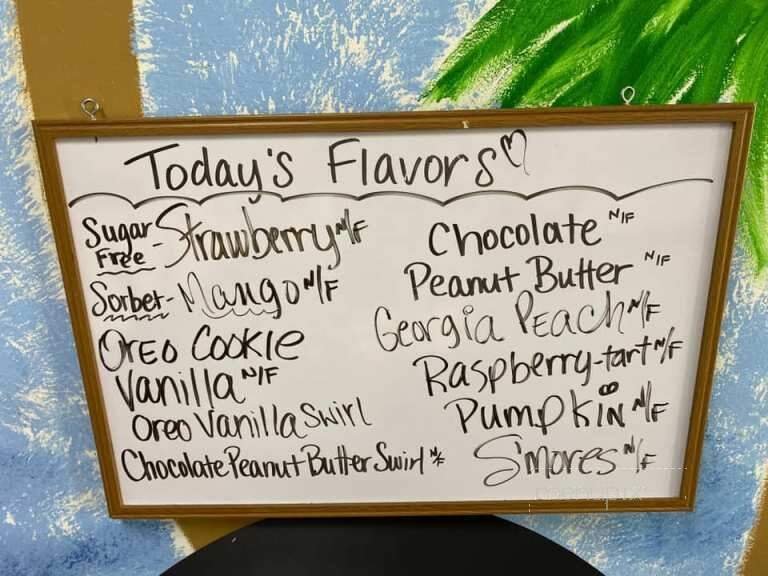 Today's Flavors
Sugar Free - Strawberry N/F
Sorbet - Mango N/F
Oreo Cookie
Vanilla N/F
Oreo Vanilla Swirl
Chocolate Peanut Butter Swirl N/F
Chocolate N/F
Peanut Butter N/F
Georgia Peach N/F
Raspberry-tart N/F
Pumpkin N/F
S'mores N/F